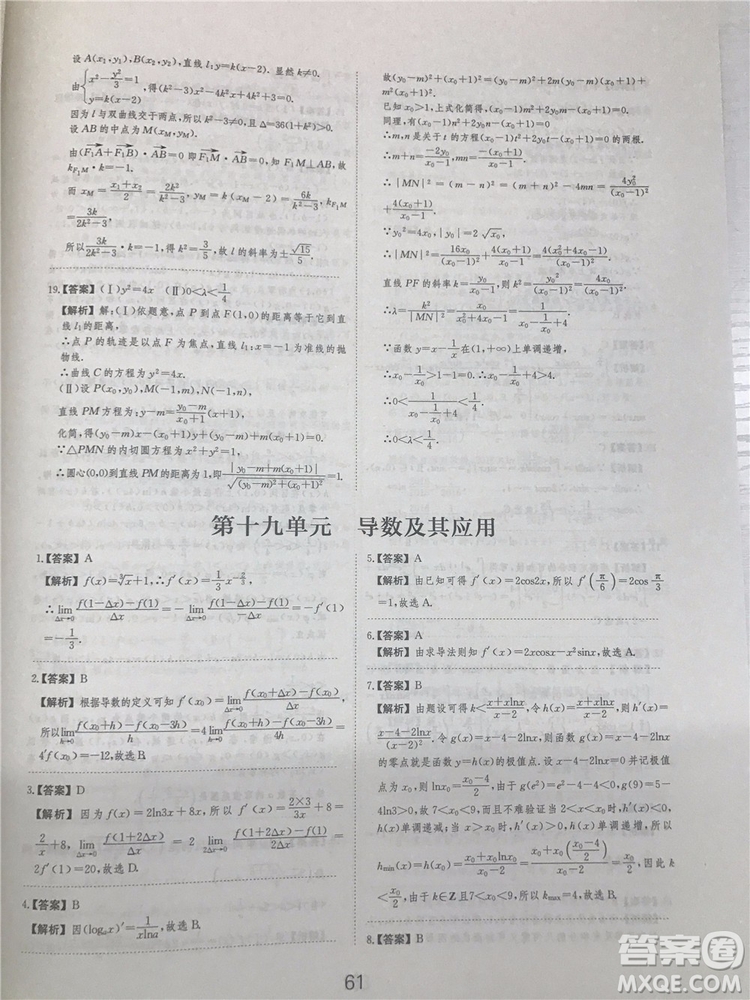 设 A(x₁,y₁),B(x₂,y₂),直线 l:y=k(x-2). 显然 k≠0.
由{x²-y²/3=1
y=k(x-2) ,得(k²-3)x²-4k²x+4k²+3=0.
因为 l 与双曲线交于两点,所以 k²-3≠0 且 Δ=36(1+k²)>0.
设 AB 的中点为 M(x_M,y_M).
由 (F₁A+F₁B)·AB=0 即 F₁M·AB=0,知 F₁M⊥AB,故
k_{F₁M}·k=-1.
而 x_M=(x₁+x₂)/2=2k²/(k²-3), y_M=k(x_M-2)=6k/(k²-3), k_{F₁M}
=3k/(2k²-3),
所以 3k/(2k²-3)·k=-1,得 k²=3/5,故 l 的斜率为±√15/5.
19.【答案】(Ⅰ)y²=4x (Ⅱ)0<λ<1/4
【解析】解:(Ⅰ)依题意,点 P 到点 F(1,0)的距离等于它到直
线 l₁的距离,
∴点 P 的轨迹是以点 F 为焦点,直线 l₁:x=-1 为准线的抛
物线.
∴曲线 C 的方程为 y²=4x.
(Ⅱ)设 P(x₀,y₀),M(-1,m),N(-1,n),
直线 PM 方程为:y-m=(y₀-m)/(x₀+1)(x+1),
化简,得(y₀-m)x-(x₀+1)y+(y₀-m)+m(x₀+1)=0.
∵△PMN 的内切圆方程为 x²+y²=1,
∴圆心(0,0)到直线 PM 的距离为 1,即|y₀-m+m(x₀+1)|/√((y₀-m)²+(x₀+1)²)=1.
故(y₀-m)²+(x₀+1)²=(y₀-m)²+2m(y₀-m)(x₀+1)+
m²(x₀+1)²
已知 x₀>1,上式化简得,(x₀-1)m²+2y₀m-(x₀+1)=0.
同理,有(x₀-1)n²+2y₀n-(x₀+1)=0.
∴m,n 是关于 t 的方程(x₀-1)t²+2y₀t-(x₀+1)=0 的两根.
∴m+n=-2y₀/(x₀-1),mn=-(x₀+1)/(x₀-1).
∴|MN|²=(m-n)²=(m+n)²-4mn=4y₀²/(x₀-1)²
+4(x₀+1)/(x₀-1).
∵y₀²=4x₀,|y₀|=2√x₀,
∴|MN|²=16x₀/(x₀-1)²+4(x₀+1)/(x₀-1)=4(x₀²+4x₀-1)/(x₀-1)².
直线 PF 的斜率 k=y₀/(x₀-1),则 k²=|y₀/(x₀-1)|²=4x₀/(x₀-1)².
∴λ=k²/|MN|²=x₀/(x₀²+4x₀-1)=1/(x₀-1/x₀+4).
∵函数 y=x-1/x 在(1,+∞)上单调递增,
∴x₀-1/x₀>1-1=0. ∴x₀-1/x₀+4>4.
∴0<1/(x₀-1/x₀+4)<1/4.
∴0<λ<1/4.
第十九单元 导数及其应用
1.【答案】A
【解析】f(x)=∛x+1,∴f′(x)=1/3 x^{-2/3}
∴lim_{Δx→0}(f(1-Δx)-f(1))/Δx=-lim_{Δx→0}(f(1-Δx)-f(1))/(-Δx)=-f′(1)
=-1/3.
2.【答案】B
【解析】根据导数的定义可知 f′(x₀)=lim_{Δx→0}(f(x₀+Δx)-f(x₀))/Δx,
所以lim_{h→0}(f(x₀+h)-f(x₀-3h))/h=4lim_{h→0}(f(x₀+h)-f(x₀-3h))/4h=
4′f′(x₀)=-12,故选 B.
3.【答案】D
【解析】因为 f(x)=2ln3x+8x,所以 f′(x)=(2×3)/3x+8=
2/x+8,根据导数定义 lim_{Δx→0}(f(1+2Δx)-f(1))/Δx=2lim_{Δx→0}(f(1+2Δx)-f(1))/2Δx=
2f′(1)=20,故选 D.
4.【答案】B
【解析】因(logₐx)′=1/(xlna),故选 B.
5.【答案】A
【解析】由已知可得 f′(x)=2cos2x,所以 f′(π/6)=2cosπ/3
=1,故选 A.
6.【答案】A
【解析】由求导法则知 f′(x)=2xcosx-x²sinx,故选 A.
7.【答案】B
【解析】由题设可得 k<(x+xlnx)/(x-2),令 h(x)=(x+xlnx)/(x-2),则 h′(x)=
(x-4-2lnx)/(x-2)². 令 g(x)=x-4-2lnx=0,得 x-4=2lnx,所以 g(x)
的零点就是函数 y=h(x)的极值点. 设 g(x)=x-4-2lnx
的零点为 x₀,则lnx₀=(x₀-4)/2,由于 g(e²)=e²-4-4<0,g(9)=5-
4ln3>0,所以 7<x₀<9,而且不难验证当 2<x<x₀时,h′(x)<0,
h(x)单调递减,当 x>x₀时,h′(x)>0,h(x)单调递增,所以
h_{min}(x)=h(x₀)=(x₀+x₀lnx₀)/(x₀-2)=(x₀+x₀((x₀-4)/2))/(x₀-2)=x₀/2,因此 k<
x₀/2,由于 k∈Z 且 7<x₀<9,所以 k_{max}=4,故选 B.
8.【答案】B
61
答案圈
MXQE.COM